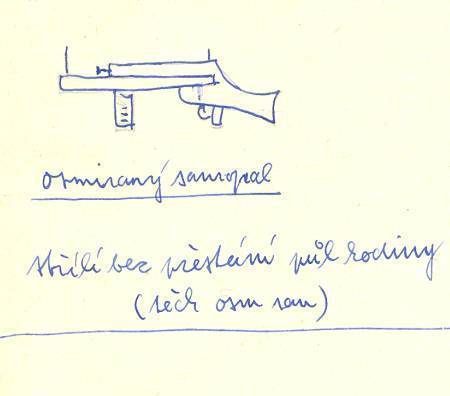 osmiraný samopal
střílí bez přestání půl hodiny
(těch osm ran)